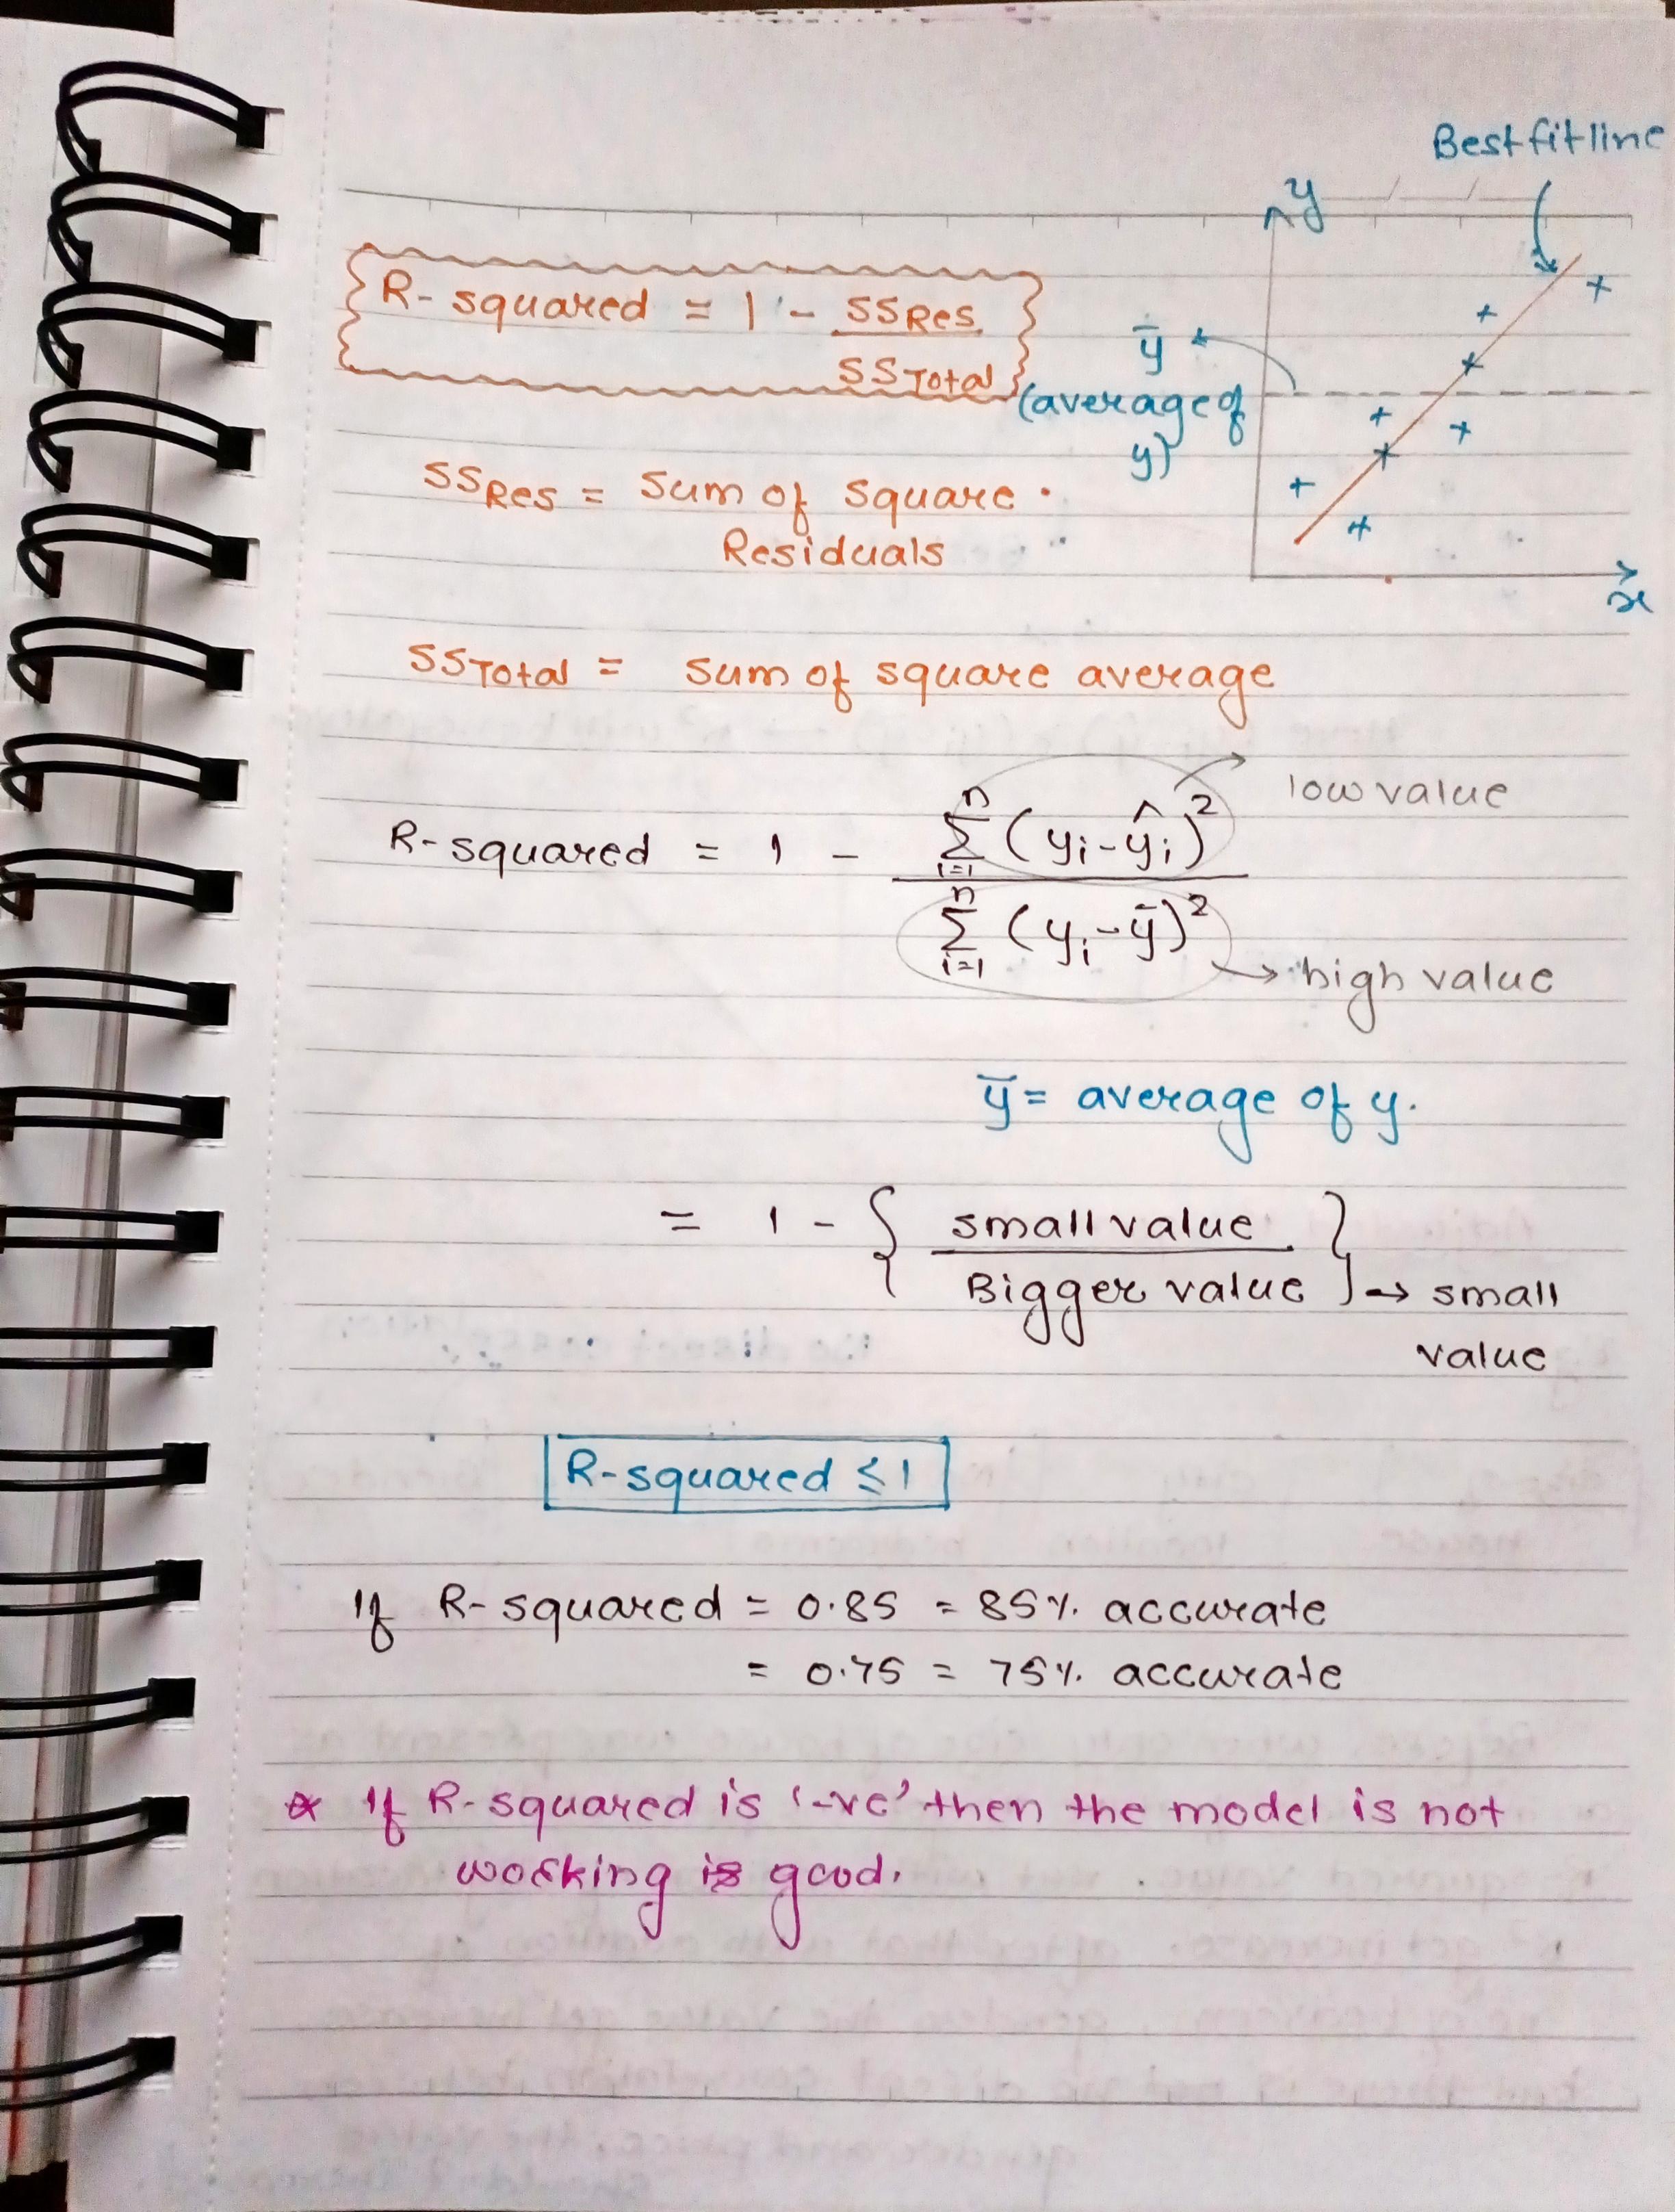 Best fit line
y
R-squared = 1 - SSRes
SSTotal
ȳ
(average of
y)
x
SSRes = Sum of Square
Residuals
SSTotal = Sum of square average
low value
R-squared = 1 - n∑i=1 (yi-ŷi)²
n∑i=1 (yi-ȳ)²
high value
ȳ = average of y.
= 1 - { small value
Bigger value } → small
value
R-squared ≤ 1
If R-squared = 0.85 = 85% accurate
= 0.75 = 75% accurate
* If R-squared is '-ve' then the model is not
working is good.